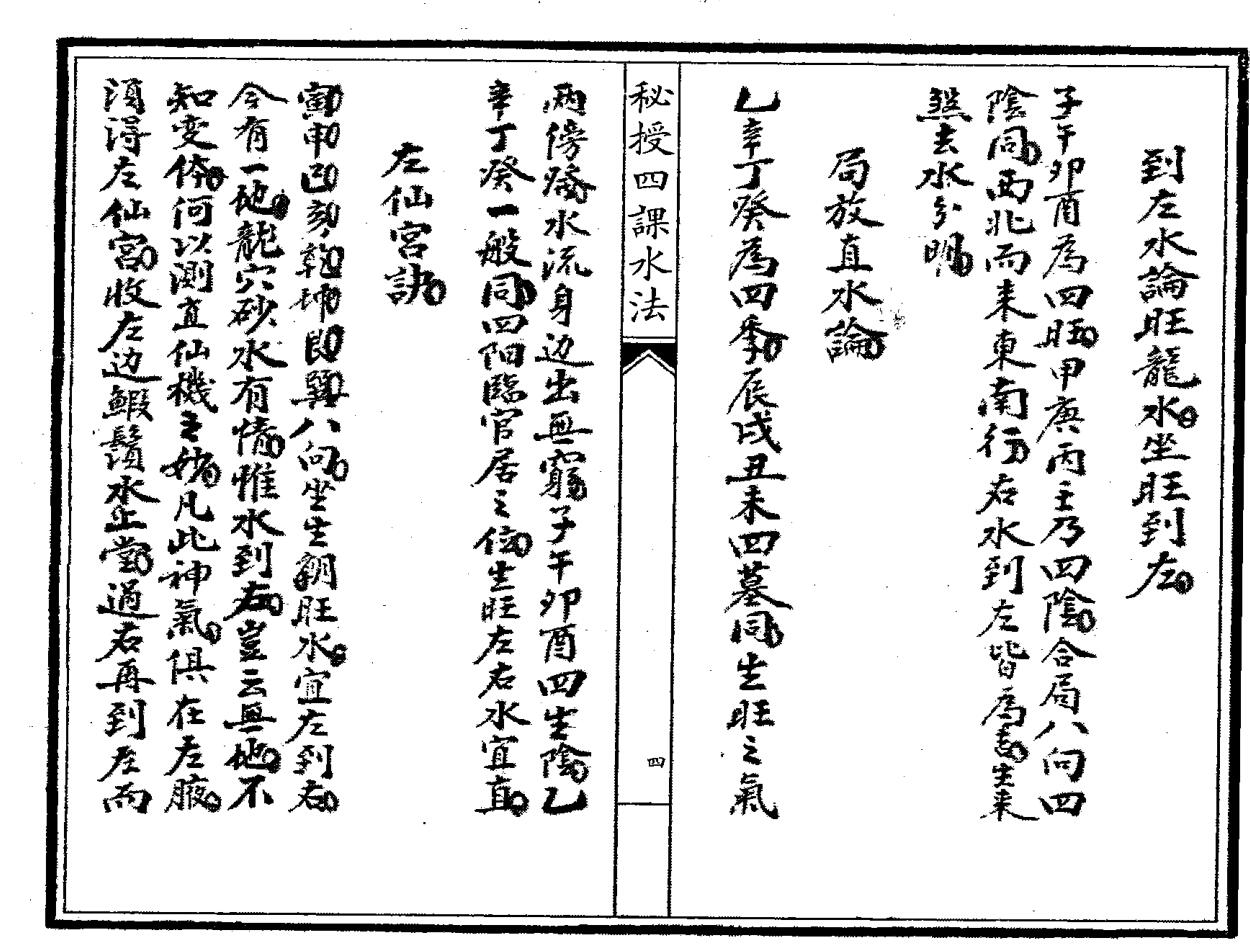 到左水論旺龍水坐旺到左
子午卯酉為四旺甲庚丙壬乃四陰合局八向四
陰同西北而來東南行右水到左皆為吉生來
煞去水分明
局放直水論
乙辛丁癸為四季辰戌丑未四墓同生旺之氣
秘授四課水法
四
兩傍發水流身边出無窮子午卯酉四生陰乙
辛丁癸一般同四阳臨官居之位生旺左右水宜直
左仙宮訣
寅申巳亥乾坤艮巽八向坐生朝旺水宜左到右
今有一地龍穴砂水有情惟水到右豈云無地不
知变体何以測直仙機之妙凡此神氣俱在左腋
須得左仙宮收左边鰕鬚水上堂過右再到左而